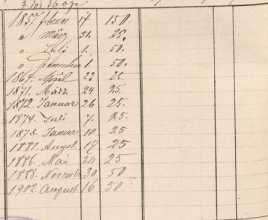 1857. 17 150
" März 31. 25.
" Juli 1. 50.
" 1 50.
1869. April 22 25.
1871. März 24 25.
1872. Januar 26 25.
1874. Juli 7. 25.
1878. Januar 10 25
1881. August 17 25
1886. Mai 20 25
1888. Novemb 30 50
1902. August 16 50